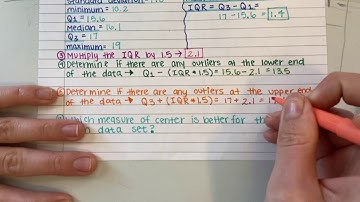 minimum = 10.2
Q₁ = 15.6
Median = 16.1
Q₃ = 17
maximum = 19
IQR = Q₃ - Q₁ =
17 - 15.6 = 1.4
③ Multiply the IQR by 1.5 → 2.1
④ Determine if there are any outliers at the lower end
of the data → Q₁ - (IQR*1.5) = 15.6 - 2.1 = 13.5
⑤ Determine if there are any outliers at the upper end
of the data → Q₃ + (IQR*1.5) = 17 + 2.1 = 1
which measure of center is better for
data set?